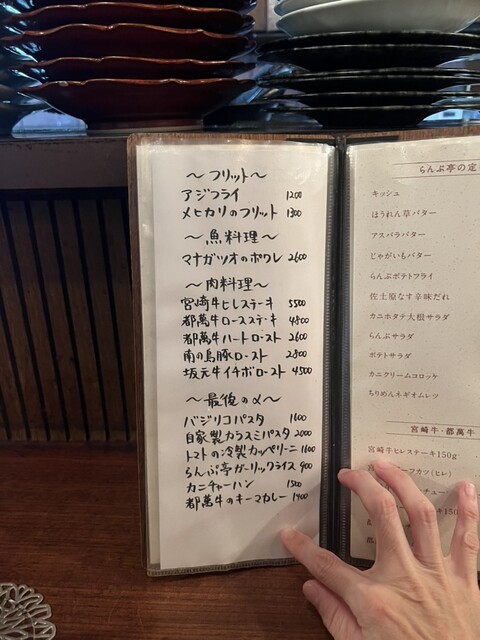 〜フリット〜
アジフライ 1200
メヒカリのフリット 1300
〜魚料理〜
マナガツオのポワレ 2600
〜肉料理〜
宮崎牛ヒレステーキ 5500
都萬牛ロースステーキ 4800
都萬牛ハートロースト 2600
南の島豚ロースト 2800
坂元牛イチボロースト 4500
〜最後のα〜
バジリコパスタ 1600
自家製カラスミパスタ 2000
トマトの冷製カッペリーニ 1600
らんぷ亭ガーリックライス 900
カニチャーハン 1500
都萬牛のキーマカレー 1400
らんぷ亭の定
キッシュ
ほうれん草バター
アスパラバター
じゃがいもバター
らんぷポテトフライ
佐土原なす辛味だれ
カニホタテ大根サラダ
らんぷサラダ
ポテトサラダ
カニクリームコロッケ
ちりめんネギオムレツ
宮崎牛・都萬牛
宮崎牛ヒレステーキ150g
フカツ(ヒレ)
チュー
キ150